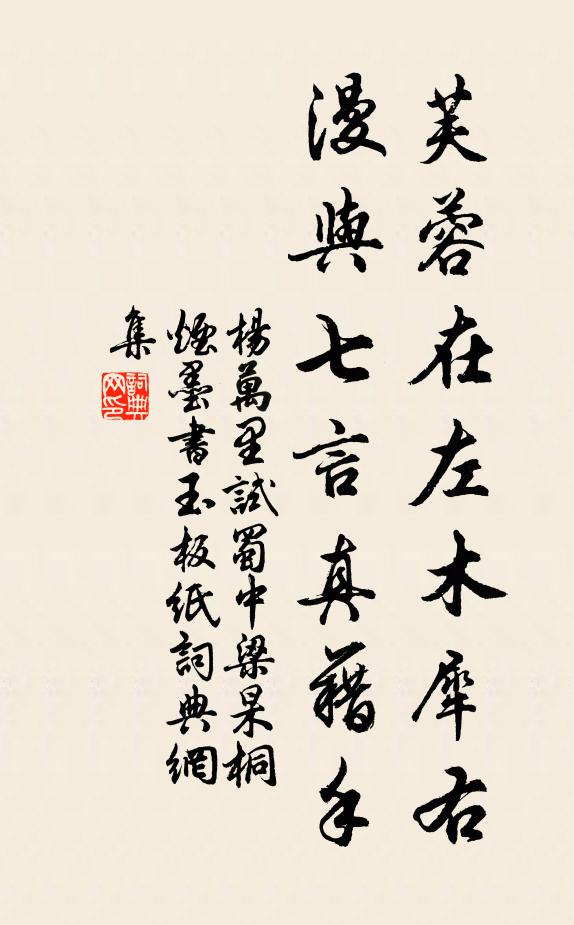 芙蓉在左木犀右
漫與七言真藉手
楊萬里試蜀中梁杲桐
煙墨書玉板紙詞典網
集
詞典網印